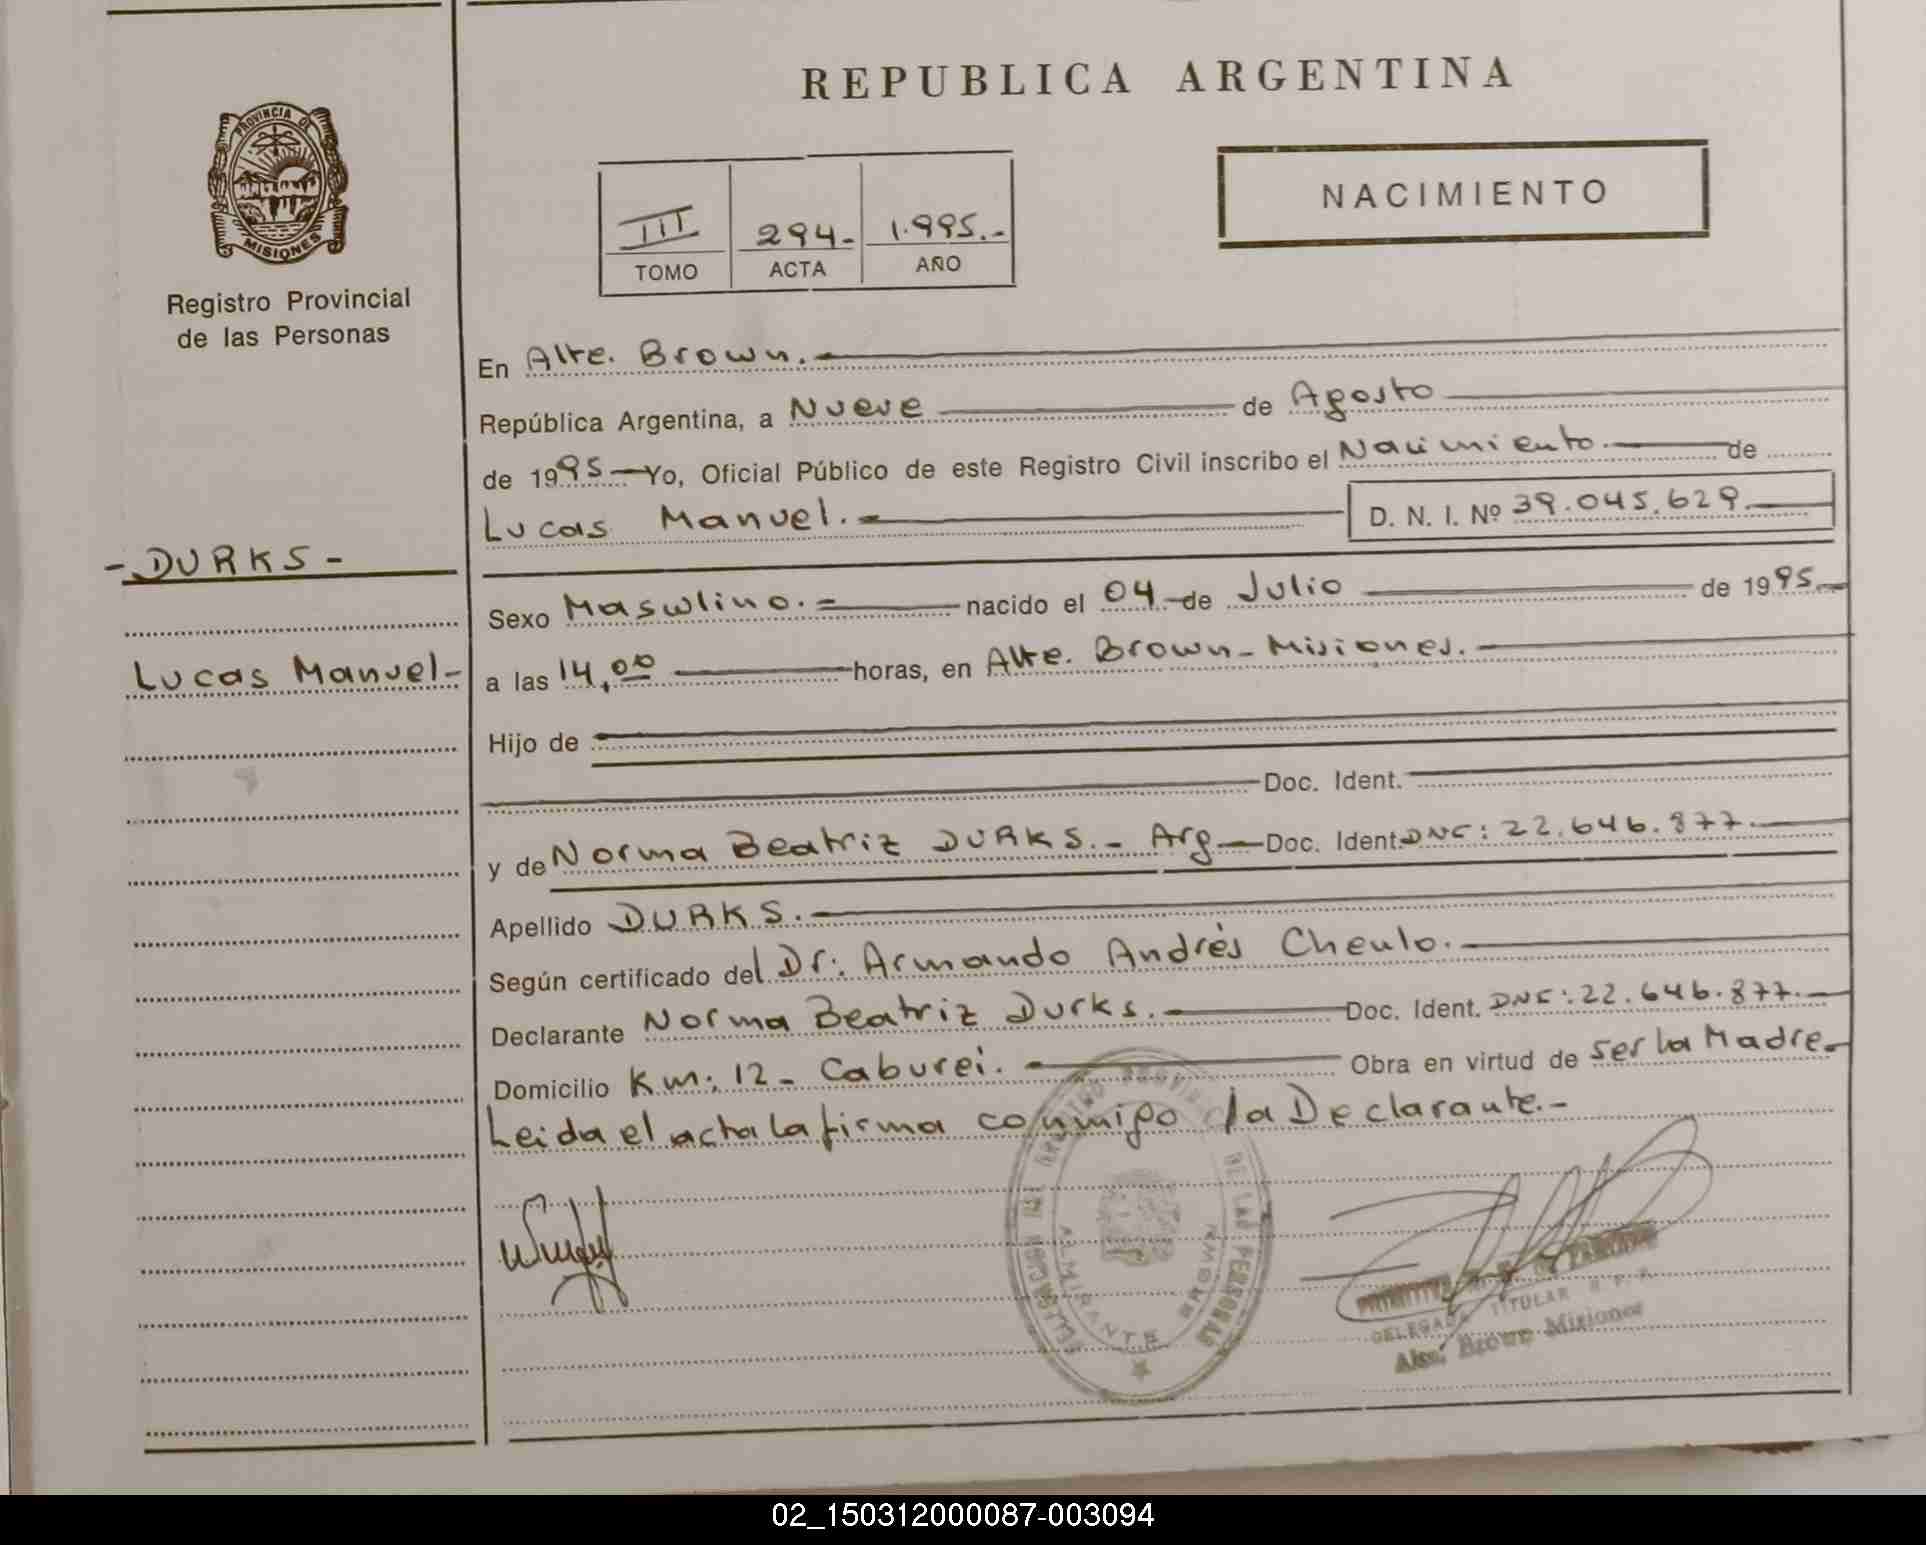 REPUBLICA ARGENTINA
PROVINCIA DE
MISIONES
Registro Provincial
de las Personas
NACIMIENTO
III 294- 1.995.-
TOMO ACTA AÑO
En Alte. Brown.
República Argentina, a Nueve de Agosto
de 1995 Yo, Oficial Público de este Registro Civil inscribo el Nacimiento de
Lucas Manuel. D. N. I. Nº 39.045.629
- DURKS -
Sexo Masculino. nacido el 04 de Julio de 1995
Lucas Manuel-
a las 14,00 horas, en Alte. Brown - Misiones.
Hijo de
Doc. Ident.
y de Norma Beatriz DURKS. - Arg Doc. Ident. DNI: 22.646.877.
Apellido DURKS.
Según certificado del Dr: Armando Andrés Cheulo.
Declarante Norma Beatriz Durks. Doc. Ident. DNI: 22.646.877.
Domicilio Km: 12 - Caburei. Obra en virtud de ser la Madre.
Leida el acta la firma conmigo la Declarante.-
DE LAS PERSONAS
ALMIRANTE BROWN
TITULAR
Alte. Brown Misiones
02_150312000087-003094